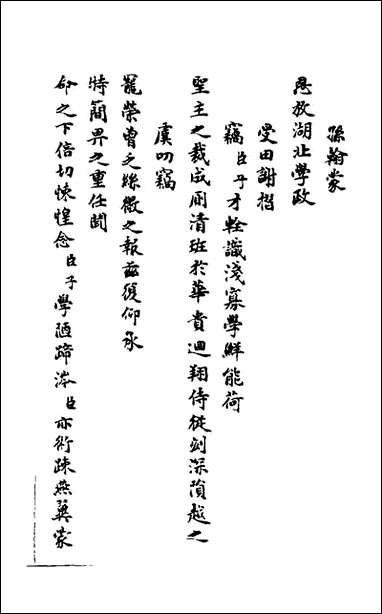 孫翰蒙
恩放湖北學政
受田謝摺
竊臣子才輇識淺寡學鮮能荷
聖主之裁成廁清班於華貴迴翔侍從刻深隕越之
虞叨竊
寵榮曾乏絲微之報茲復仰承
特簡畀之重任聞
命之下倍切悚惶念臣子學陋蹄涔臣亦術疎燕翼蒙